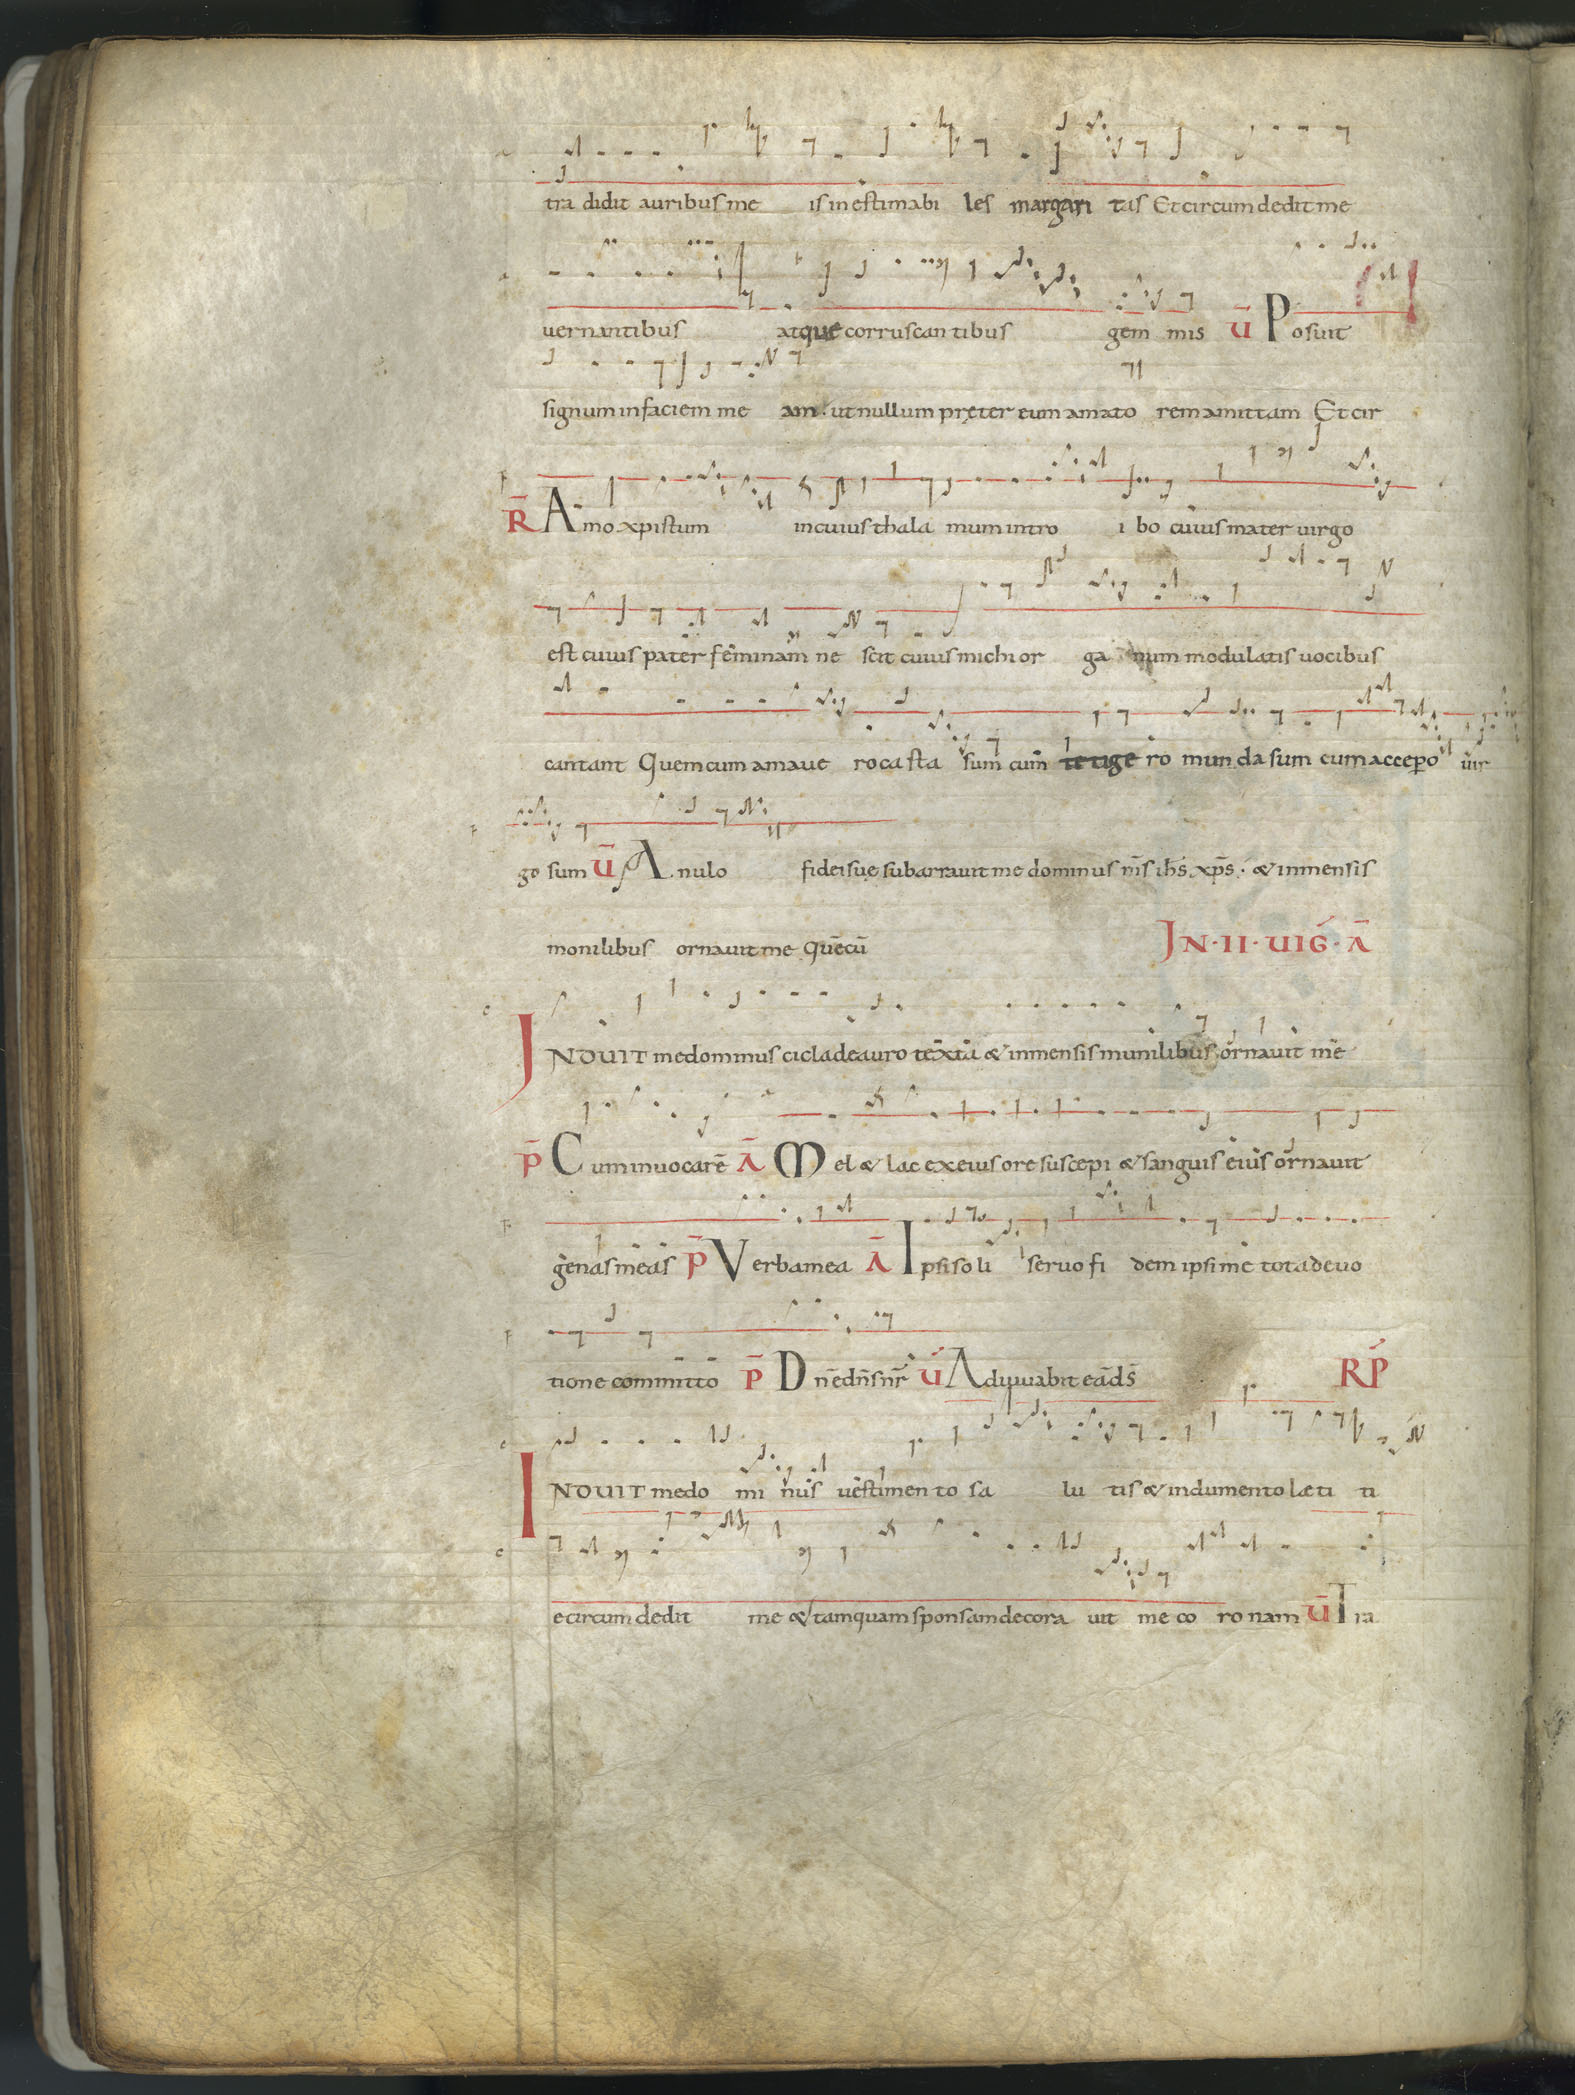 tra didit auribus me is in estimabi les margari tas Et circum dedit me
uernantibus atque corruscantibus gem mis ū Posuit
signum in faciem me am. ut nullum pręter eum amato rem amittam Et cir
R̄ Amo xp̄istum in cuius thala mum intro i bo cuius mater uirgo
est cuius pater feminam ne scit cuius michi or ga num modulatis uocibus
cantant Quem cum amaue ro casta sum cum tetige ro munda sum cum accepero uir
go sum ū Anulo fidei suę subarrauit me dominus n̄s ih̄s xp̄s. & inmensis
monilibus ornauit me Quē cū
JN · II · UIḠ · Ā
INDUIT me dominus ciclade auro texta & inmensis munilibus ornauit me
p̄ Cum inuocarē Ā Mel & lac ex eius ore suscepi & sanguis eius ornauit
genas meas p̄ Verba mea Ā Ipsi soli seruo fi dem ipsi me tota deuo
tione committo p̄ Dn̄e dn̄s nr̄ ū Adiuuabit eā ds̄ RP̄
INDUIT me do mi nus uestimen to sa lu tis & indumento læti ti
e circum dedit me & tamquam sponsam decora uit me co ro nam ū Tra